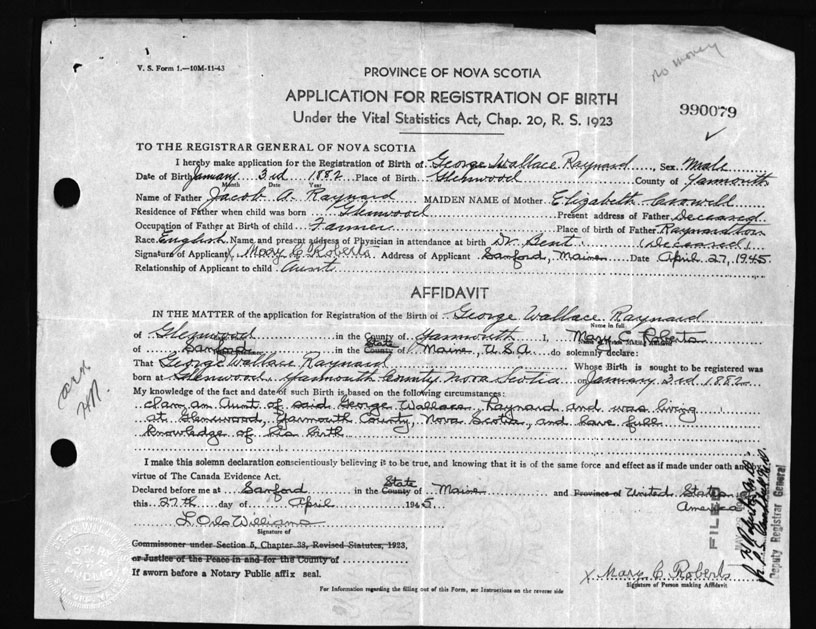 V. S. Form 1.—10M-11-43
no money
PROVINCE OF NOVA SCOTIA
APPLICATION FOR REGISTRATION OF BIRTH
990079
Under the Vital Statistics Act, Chap. 20, R. S. 1923
TO THE REGISTRAR GENERAL OF NOVA SCOTIA
I hereby make application for the Registration of Birth of George Wallace Raynard, Sex Male
Date of Birth January 3rd 1882 Place of Birth Glenwood County of Yarmouth
Month Date Year
Name of Father Jacob A. Raynard MAIDEN NAME of Mother Elizabeth
Residence of Father when child was born Glenwood Present address of Father Deceased
Occupation of Father at Birth of child Farmer Place of birth of Father Raynardton
Race English Name and present address of Physician in attendance at birth Dr. Bent (Deceased)
Signature of Applicant X Mary C. Roberts Address of Applicant Sanford, Maine Date April 27, 1945
Relationship of Applicant to child Aunt
AFFIDAVIT
IN THE MATTER of the application for Registration of the Birth of George Wallace Raynard
Name in full
of Glenwood in the County of Yarmouth I, Mary C. Roberts
of Sanford in the County of State Maine, U.S.A do solemnly declare:
That George Wallace Raynard Whose Birth is sought to be registered was
born at Glenwood Yarmouth County Nova Scotia on January 3rd 1882
My knowledge of the fact and date of such Birth is based on the following circumstances:
I am an Aunt of said George Wallace Raynard and was living
at Glenwood, Yarmouth County, Nova Scotia, and have full
knowledge of his birth
card
I make this solemn declaration conscientiously believing it to be true, and knowing that it is of the same force and effect as if made under oath and
virtue of The Canada Evidence Act.
Declared before me at Sanford in the County of State Maine and Province of United States
America
this 27th day of April 1945
L. Orlo Williams
Signature of
Commissioner under Section 5, Chapter 38, Revised Statutes, 1923,
or Justice of the Peace in and for the County of
If sworn before a Notary Public affix seal.
FILED
Deputy Registrar General
X Mary C. Roberts
Signature of Person making Affidavit
For Information regarding the filling out of this Form, see Instructions on the reverse side